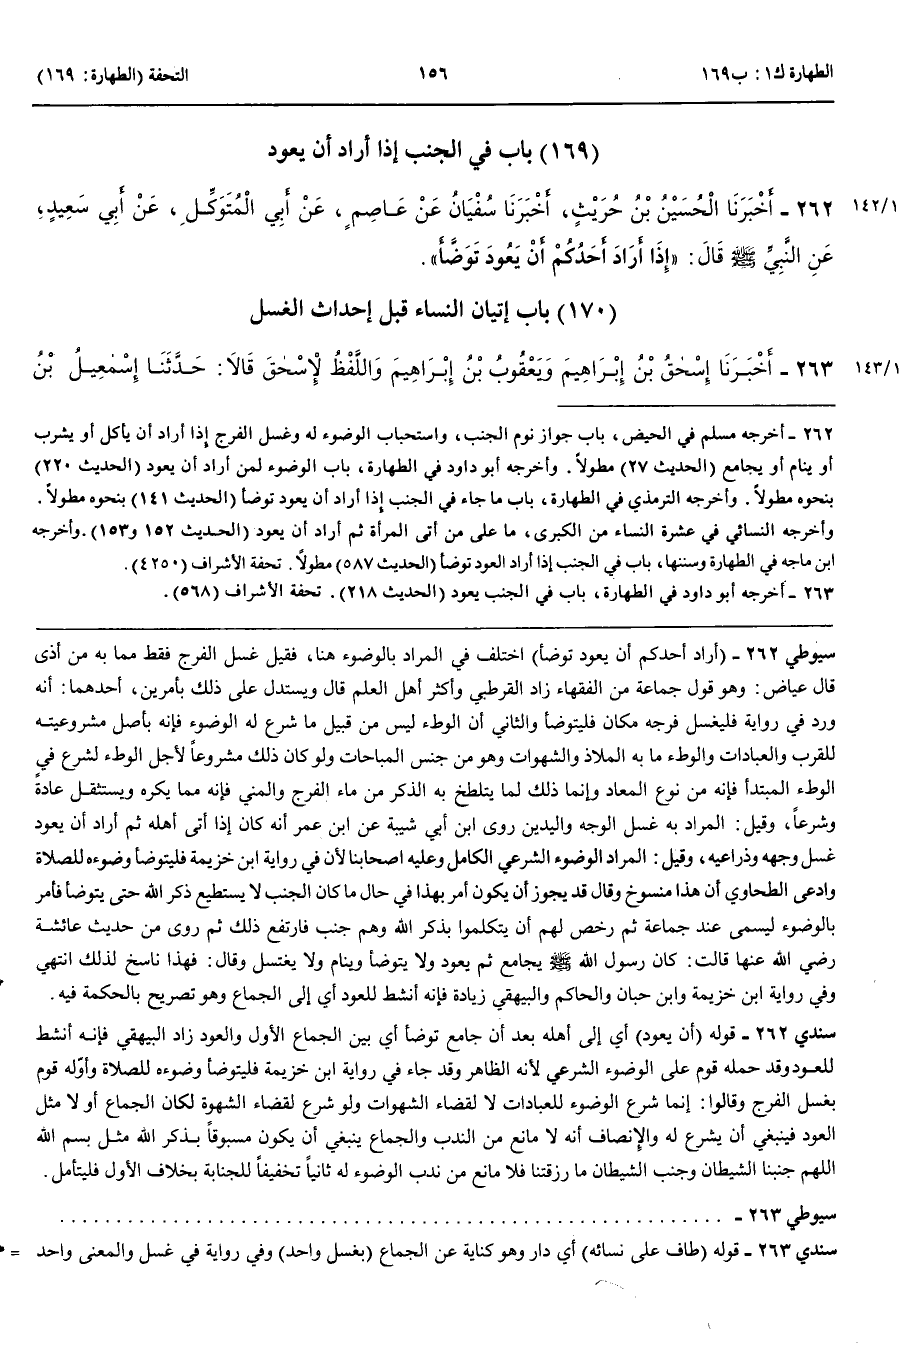 الطهارة ك١: ب١٦٩
١٥٦
التحفة (الطهارة: ١٦٩)
(١٦٩) باب في الجنب إذا أراد أن يعود
١٤٢/١
٢٦٢ ـ أَخْبَرَنَا الْحُسَيْنُ بْنُ حُرَيْثٍ، أَخْبَرَنَا سُفْيَانُ عَنْ عَاصِمٍ، عَنْ أَبِي الْمُتَوَكِّلِ، عَنْ أَبِي سَعِيدٍ،
عَنِ النَّبِيِّ ﷺ قَالَ: «إِذَا أَرَادَ أَحَدُكُمْ أَنْ يَعُودَ تَوَضَّأَ».
(١٧٠) باب إتيان النساء قبل إحداث الغسل
١٤٣/١
٢٦٣ ـ أَخْبَرَنَا إِسْحٰقُ بْنُ إِبْرَاهِيمَ وَيَعْقُوبُ بْنُ إِبْرَاهِيمَ وَاللَّفْظُ لِإِسْحٰقَ قَالَا: حَدَّثَنَا إِسْمٰعِيلُ بْنُ
٢٦٢ ـ أخرجه مسلم في الحيض، باب جواز نوم الجنب، واستحباب الوضوء له وغسل الفرج إذا أراد أن يأكل أو يشرب
أو ينام أو يجامع (الحديث ٢٧) مطولاً. وأخرجه أبو داود في الطهارة، باب الوضوء لمن أراد أن يعود (الحديث ٢٢٠)
بنحوه مطولاً. وأخرجه الترمذي في الطهارة، باب ما جاء في الجنب إذا أراد أن يعود توضأ (الحديث ١٤١) بنحوه مطولاً.
وأخرجه النسائي في عشرة النساء من الكبرى، ما على من أتى المرأة ثم أراد أن يعود (الحديث ١٥٢ و١٥٣).وأخرجه
ابن ماجه في الطهارة وسننها، باب في الجنب إذا أراد العود توضأ (الحديث ٥٨٧) مطولاً. تحفة الأشراف (٤٢٥٠).
٢٦٣ ـ أخرجه أبو داود في الطهارة، باب في الجنب يعود (الحديث ٢١٨). تحفة الأشراف (٥٦٨).
سيوطي ٢٦٢ ـ (أراد أحدكم أن يعود توضأ) اختلف في المراد بالوضوء هنا، فقيل غسل الفرج فقط مما به من أذى
قال عياض: وهو قول جماعة من الفقهاء زاد القرطبي وأكثر أهل العلم قال ويستدل على ذلك بأمرين، أحدهما: أنه
ورد في رواية فليغسل فرجه مكان فليتوضأ والثاني أن الوطء ليس من قبيل ما شرع له الوضوء فإنه بأصل مشروعيته
للقرب والعبادات والوطء ما به الملاذ والشهوات وهو من جنس المباحات ولو كان ذلك مشروعاً لأجل الوطء لشرع في
الوطء المبتدأ فإنه من نوع المعاد وإنما ذلك لما يتلطخ به الذكر من ماء الفرج والمني فإنه مما يكره ويستثقل عادةً
وشرعاً، وقيل: المراد به غسل الوجه واليدين روى ابن أبي شيبة عن ابن عمر أنه كان إذا أتى أهله ثم أراد أن يعود
غسل وجهه وذراعيه، وقيل: المراد الوضوء الشرعي الكامل وعليه اصحابنا لأن في رواية ابن خزيمة فليتوضأ وضوءه للصلاة
وادعى الطحاوي أن هذا منسوخ وقال قد يجوز أن يكون أمر بهذا في حال ما كان الجنب لا يستطيع ذكر الله حتى يتوضأ فأمر
بالوضوء ليسمى عند جماعة ثم رخص لهم أن يتكلموا بذكر الله وهم جنب فارتفع ذلك ثم روى من حديث عائشة
رضي الله عنها قالت: كان رسول الله ﷺ يجامع ثم يعود ولا يتوضأ وينام ولا يغتسل وقال: فهذا ناسخ لذلك انتهي
وفي رواية ابن خزيمة وابن حبان والحاكم والبيهقي زيادة فإنه أنشط للعود أي إلى الجماع وهو تصريح بالحكمة فيه.
سندي ٢٦٢ ـ قوله (أن يعود) أي إلى أهله بعد أن جامع توضأ أي بين الجماع الأول والعود زاد البيهقي فإنه أنشط
للعود وقد حمله قوم على الوضوء الشرعي لأنه الظاهر وقد جاء في رواية ابن خزيمة فليتوضأ وضوءه للصلاة وأوّله قوم
بغسل الفرج وقالوا: إنما شرع الوضوء للعبادات لا لقضاء الشهوات ولو شرع لقضاء الشهوة لكان الجماع أو لا مثل
العود فينبغي أن يشرع له والإنصاف أنه لا مانع من الندب والجماع ينبغي أن يكون مسبوقاً بذكر الله مثل بسم الله
اللهم جنبنا الشيطان وجنب الشيطان ما رزقتنا فلا مانع من ندب الوضوء له ثانياً تخفيفاً للجنابة بخلاف الأول فليتأمل.
سيوطي ٢٦٣ ـ . . . . . . . . . . . . . . . . . . . . . . . . . . . . . . . . . . . . . . . .
سندي ٢٦٣ ـ قوله (طاف على نسائه) أي دار وهو كناية عن الجماع (بغسل واحد) وفي رواية في غسل والمعنى واحد =